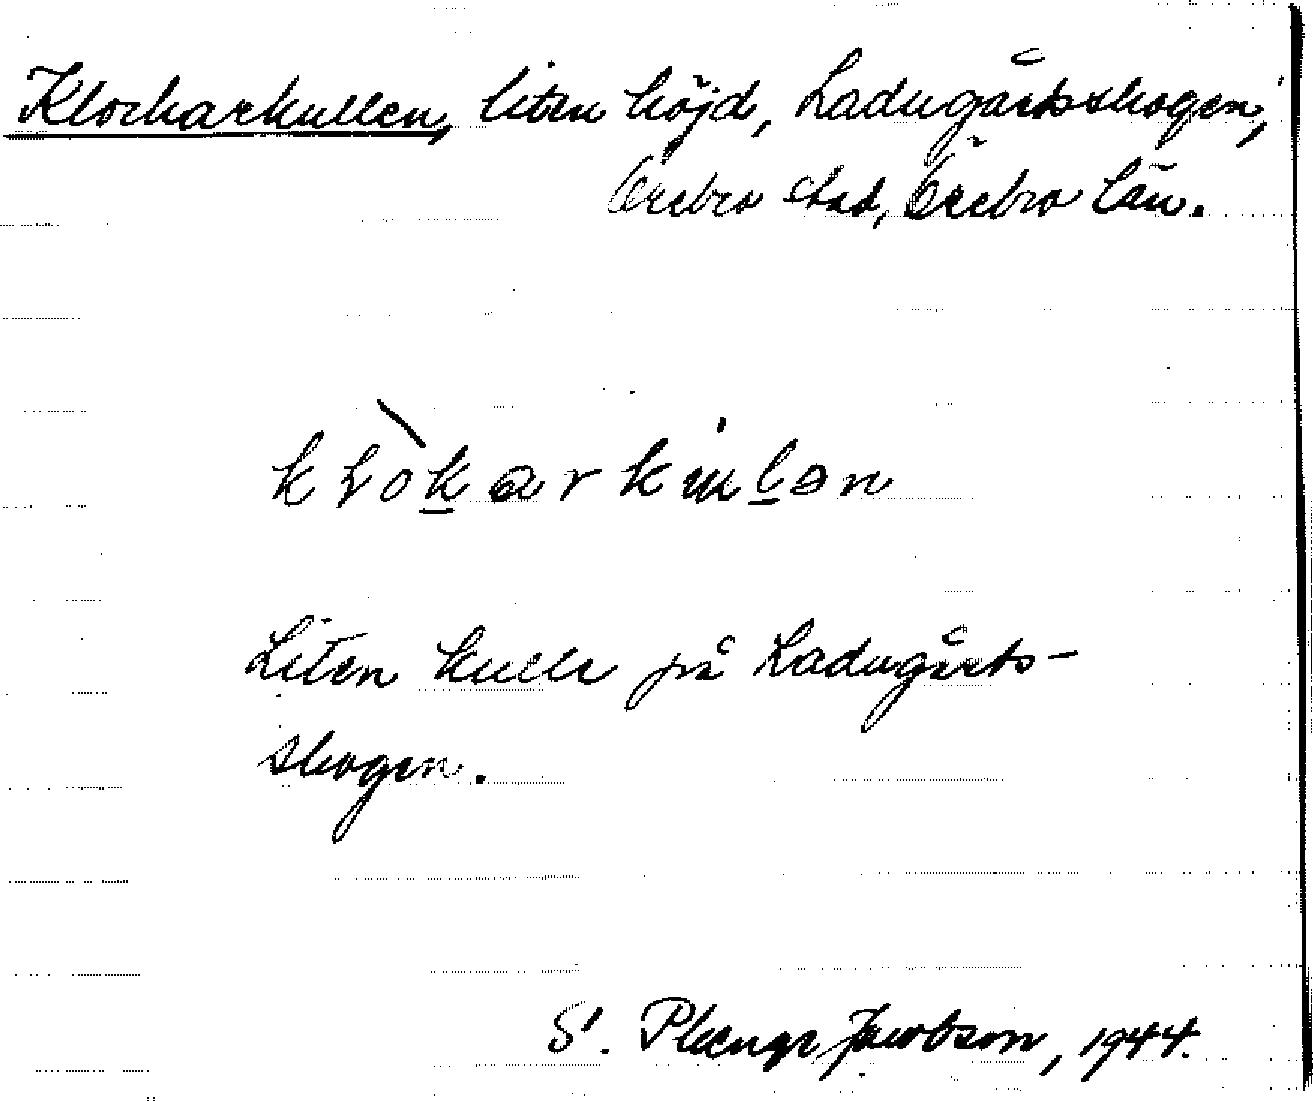 Klockarkullen, liten höjd, Ladugårdsskogen,
Örebro stad, Örebro län.
Liten kulle på Ladugårds-
skogen.
S. Plænge Jacobson, 1944.